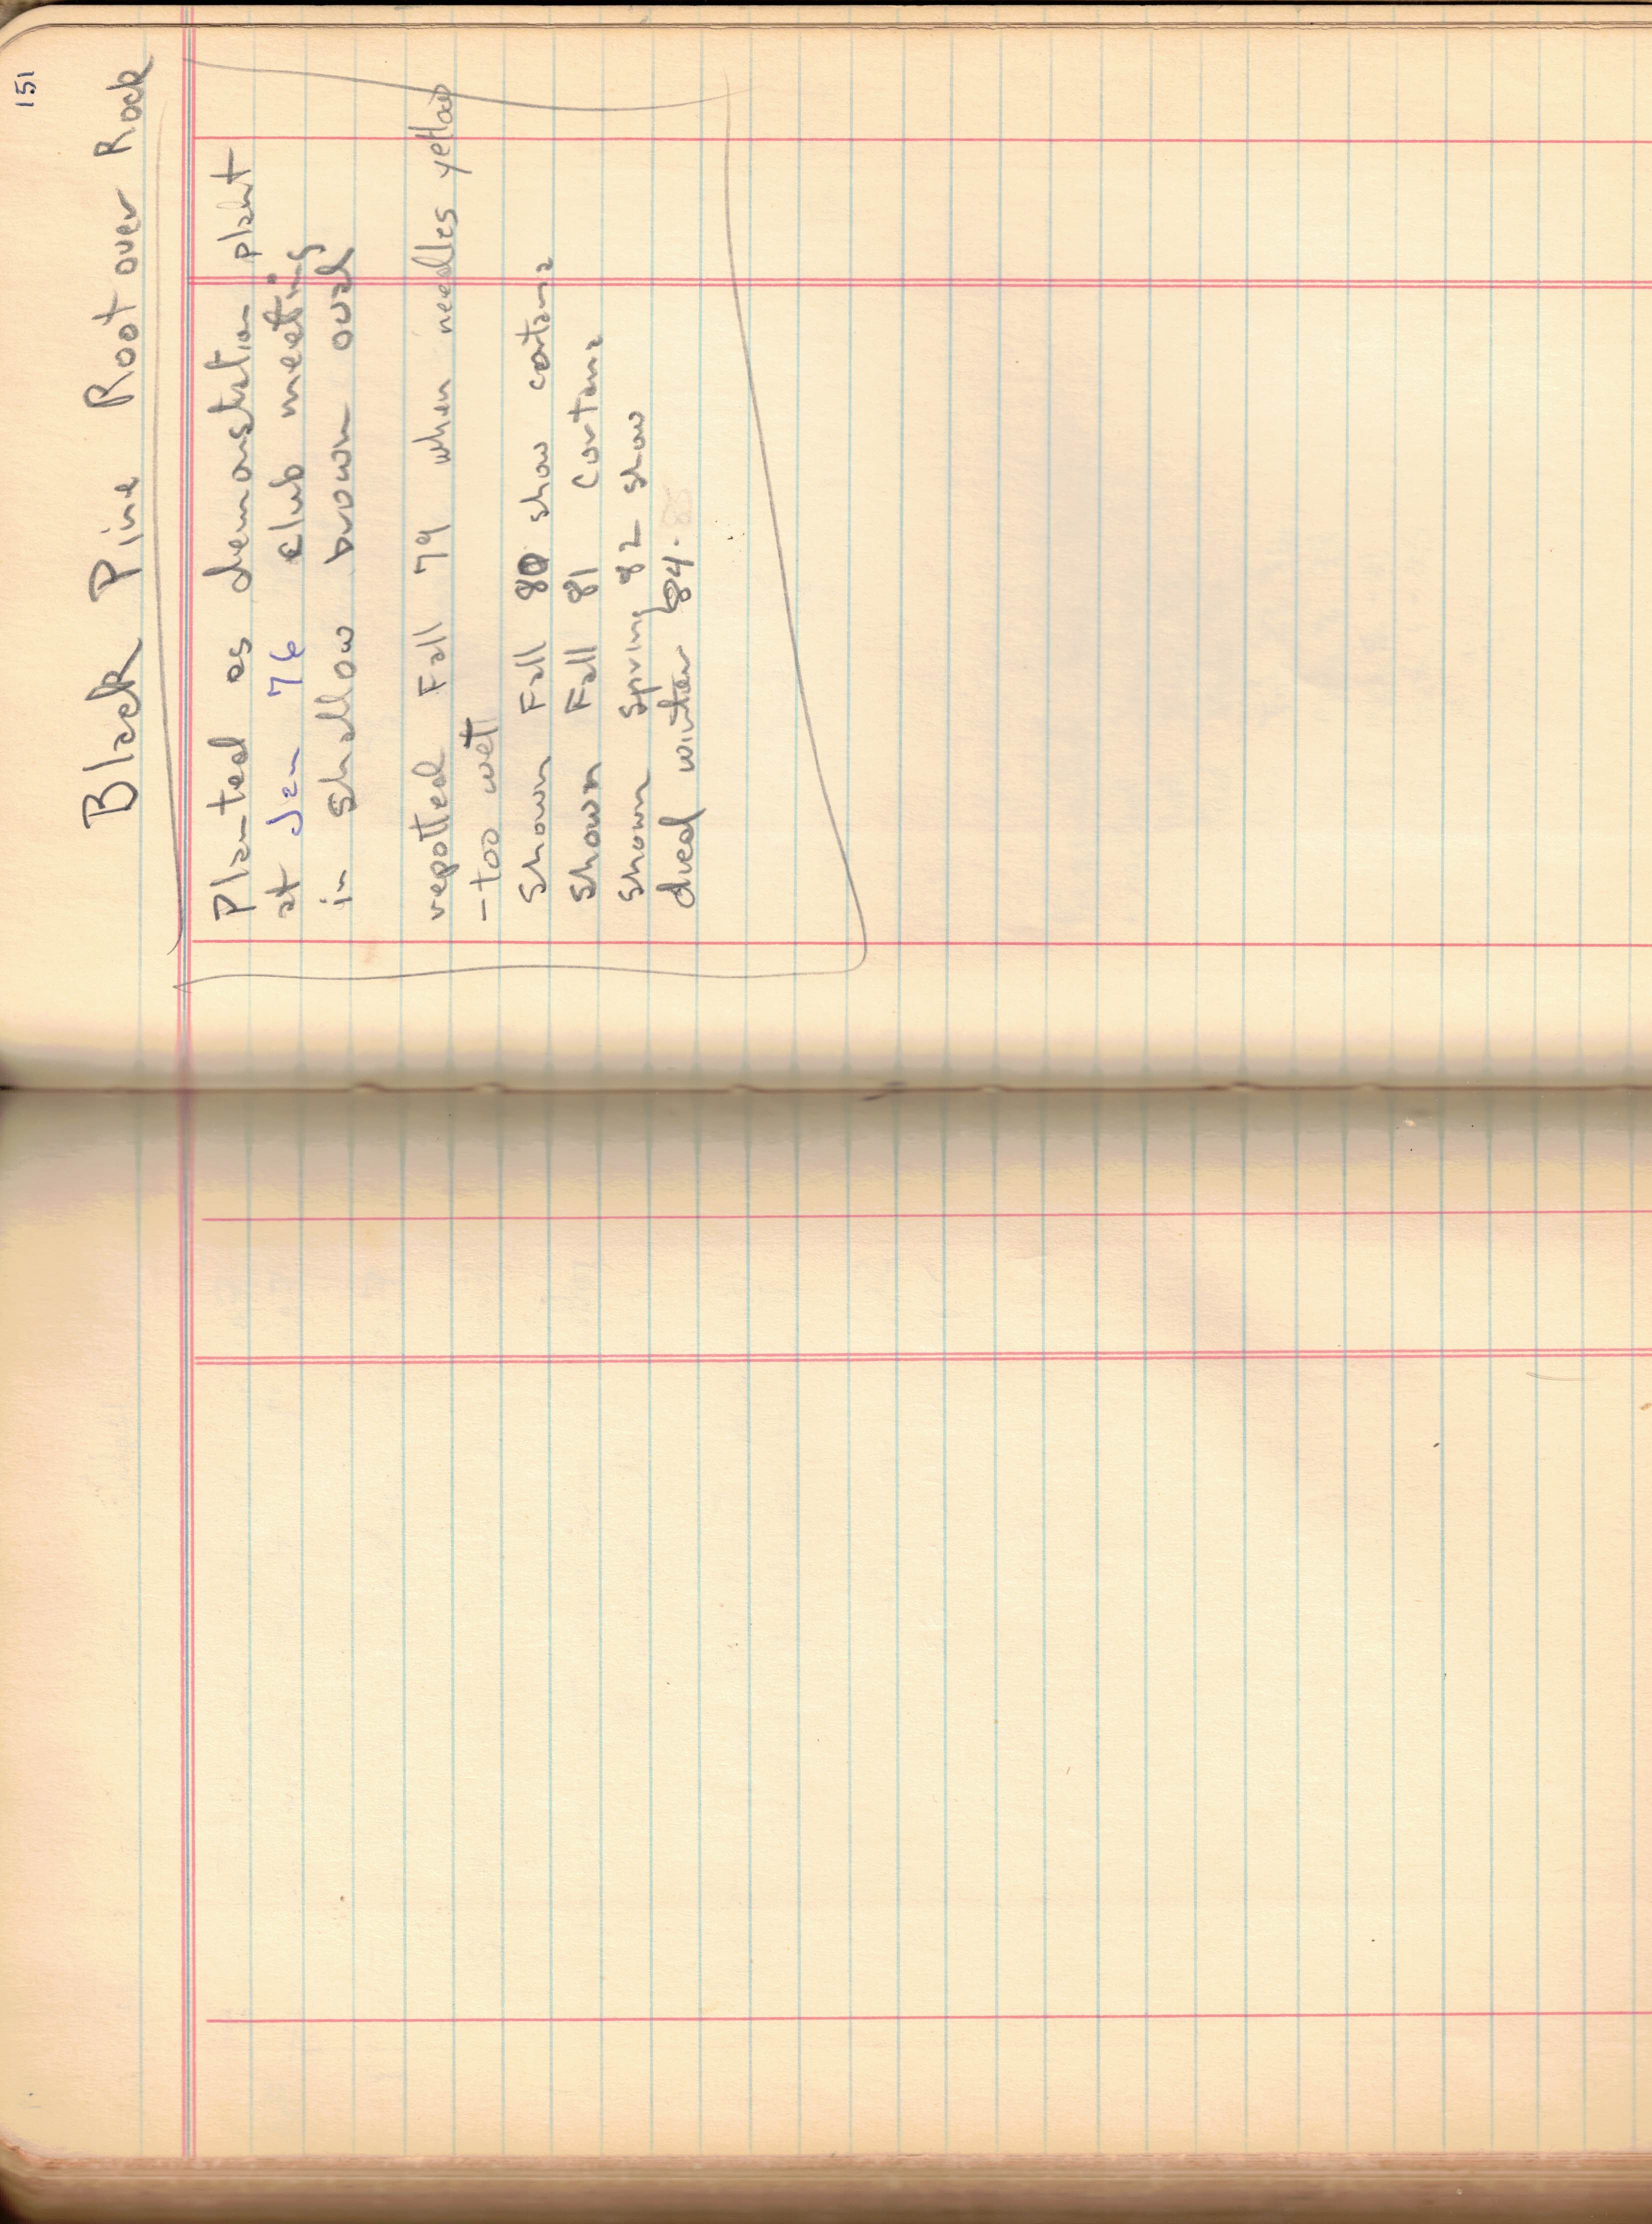 151
Black Pine Root over Rock
Planted as demonstation plant
at Jan 76 club meeting
in shallow brown oval
repotted Fall 79 when needles yellow
- too wet
Shown Fall 80 show cortana
Shown Fall 81 Cortana
Shown Spring 82 show
died winter 84.